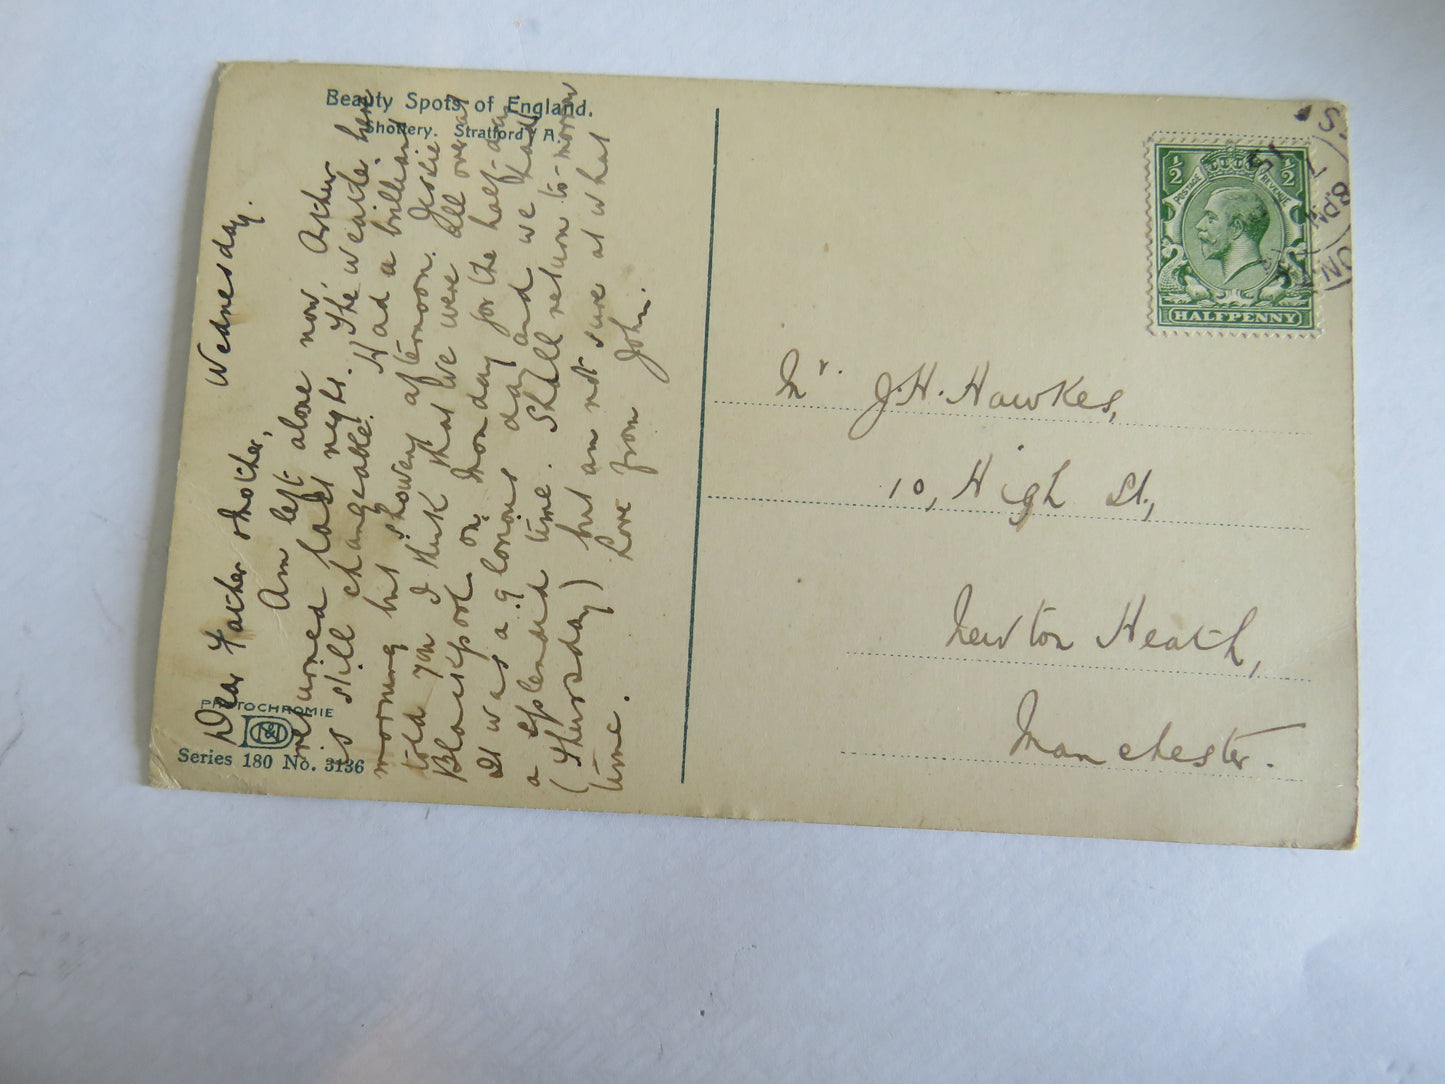 Beauty Spots of England.
Shottery. Stratford / A.
Wednesday.
Dear Father & Mother,
Am left alone now, Arthur
returned last night. The weather here
is still changeable. Had a brilliant
morning but showery afternoon. Jessie
told you I think that we were all over at
Blackpool on Monday for the half-day
It was a glorious day and we had
a splendid time. Shall return to-morrow
(Thursday) but am not sure at what
time.
Love from
John.
PHOTOCHROMIE
Series 180 No. 3136
½ ½
POSTAGE REVENUE
HALFPENNY
8.PM
Mr. J. H. Hawkes,
10, High St.,
Newton Heath,
Manchester.